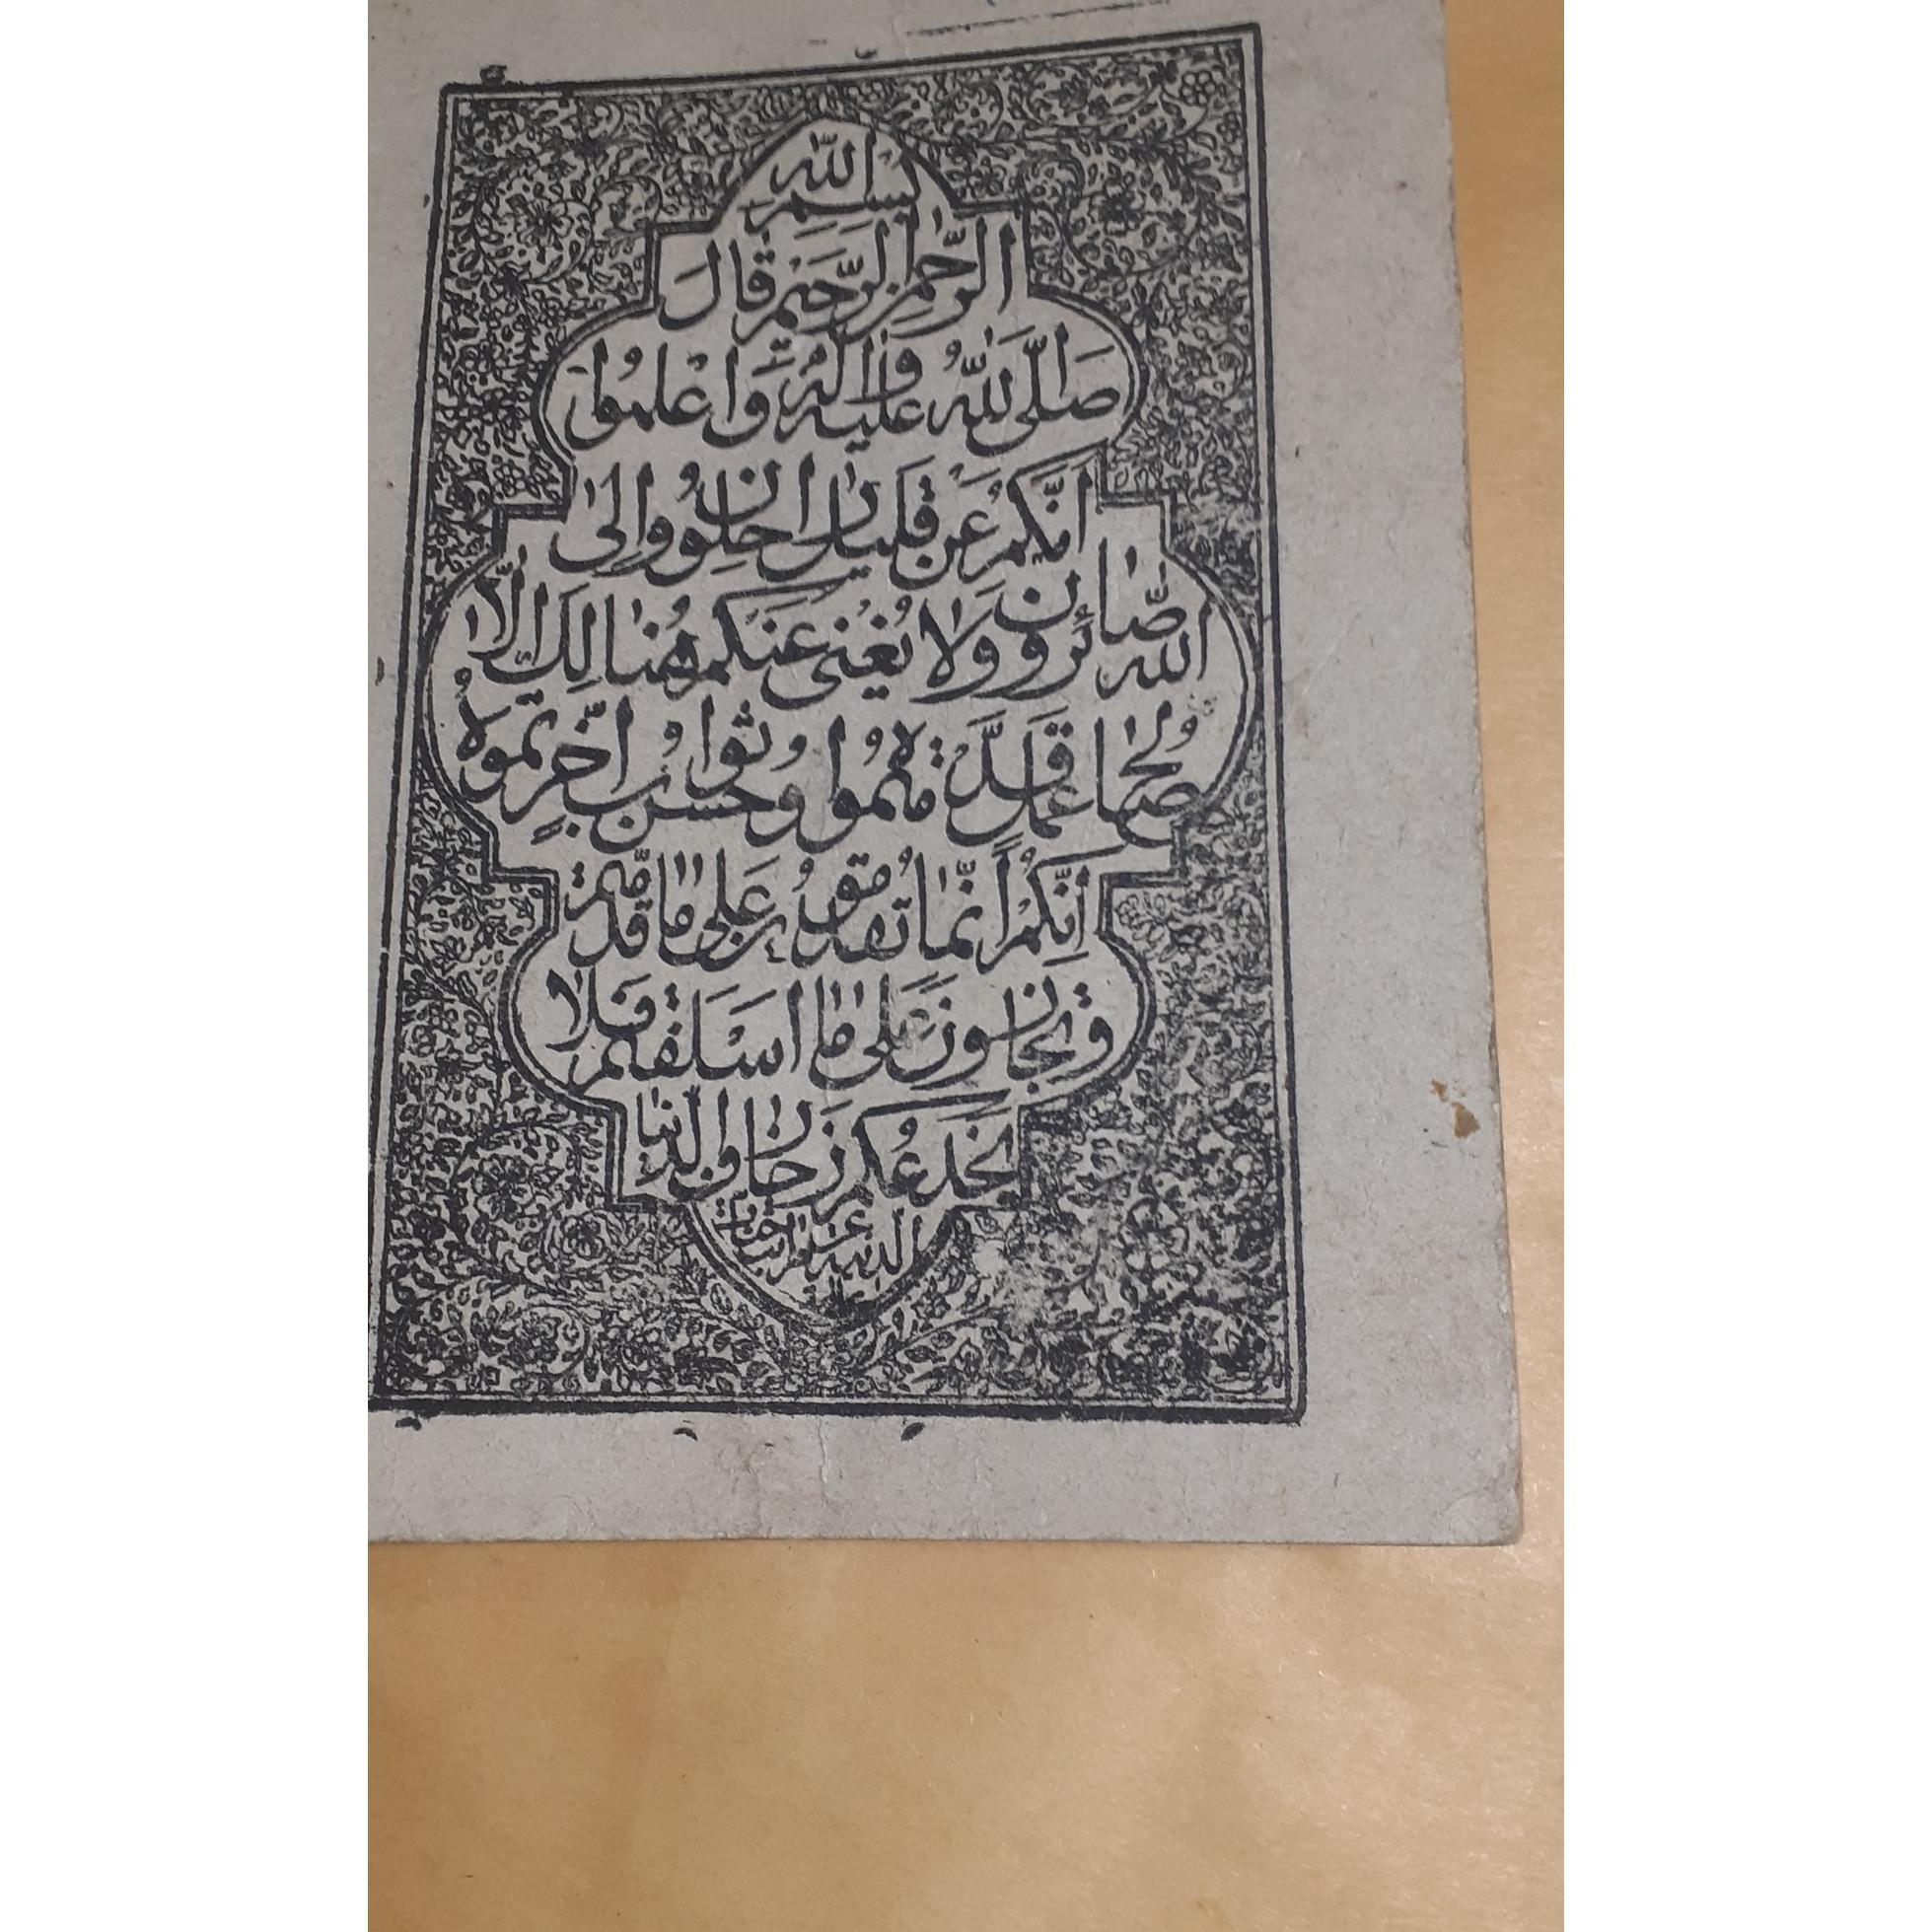 بسم الله
الرحمن الرحيم قال
صلى الله عليه واله واعلموا
انكم عن قليل راحلون والى
الله صائرون ولا يغنى عنكم هنالك الا
صالح عمل قدمتموه وحسن ثواب اخرتموه
انكم انما تقدمون على ما قدمتم
وتجازون على ما اسلفتم فلا
يخدعنكم زخارف الدنيا
الدنية عن